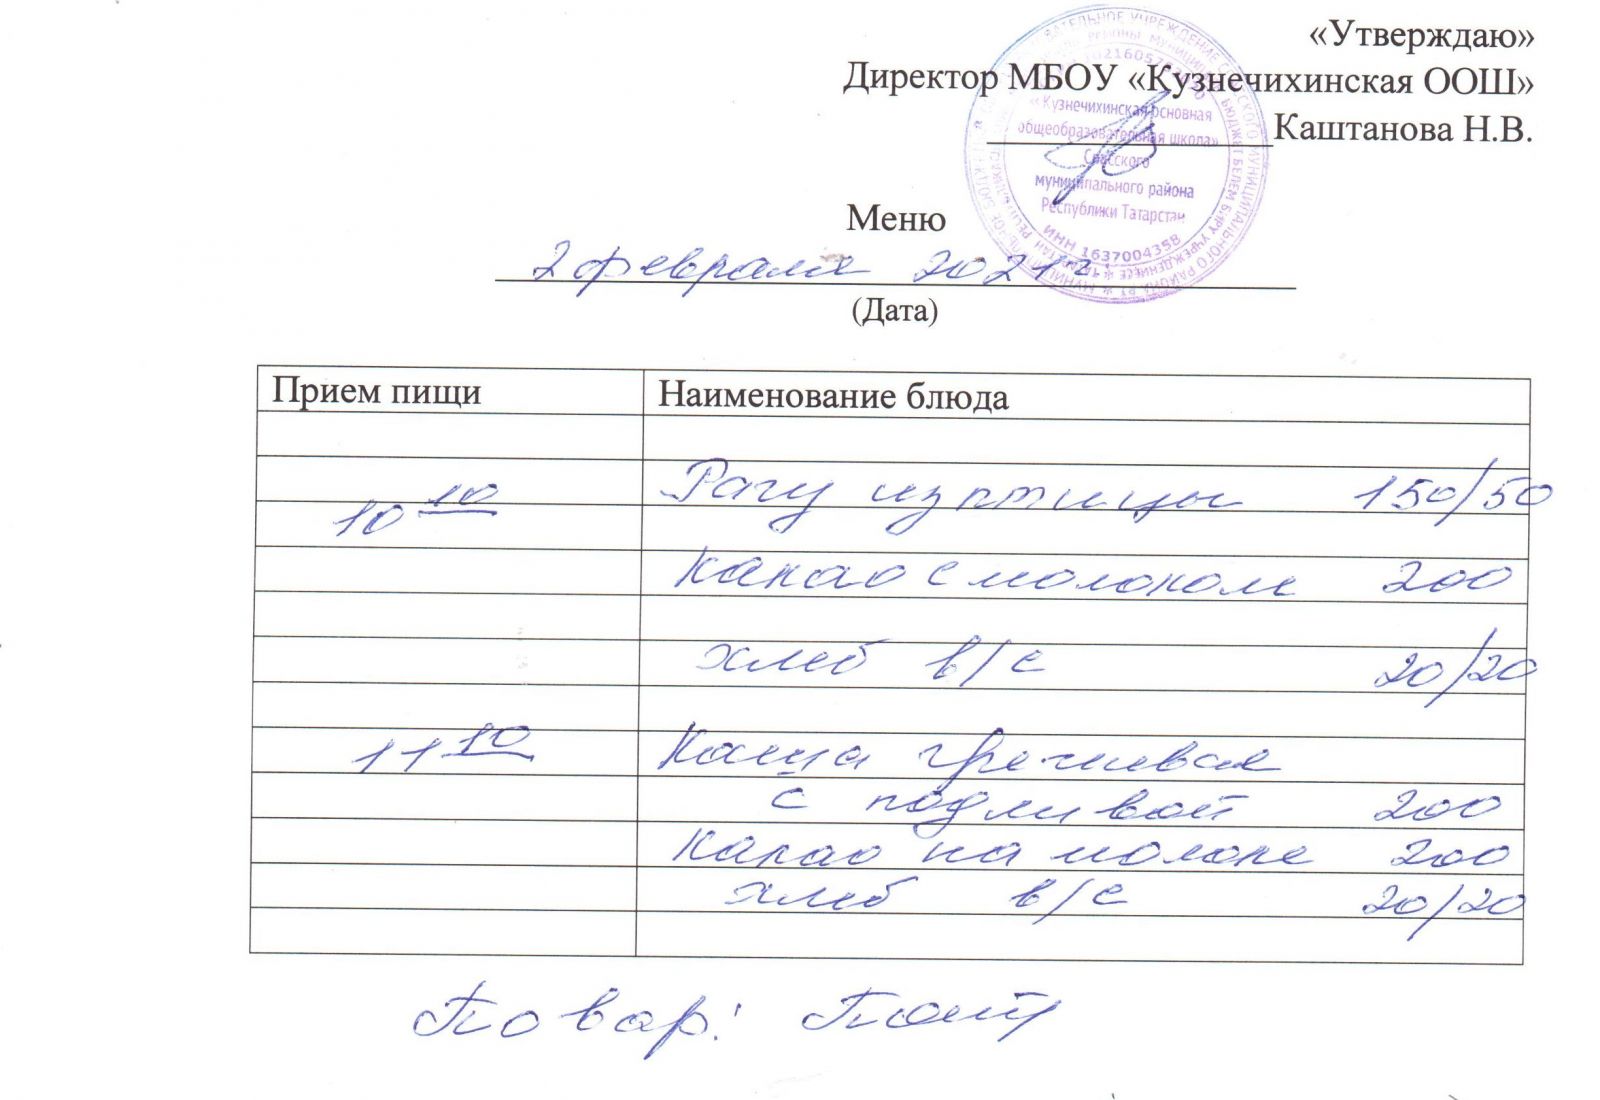 «Утверждаю»
Директор МБОУ «Кузнечихинская ООШ»
Каштанова Н.В.
«Кузнечихинская основная
общеобразовательная школа»
Спасского
муниципального района
Республики Татарстан
ИНН 1637004358
Меню
2 февраля 2021 г.
(Дата)
Прием пищи Наименование блюда
10 10 Рагу из птицы 150/50
Какао с молоком 200
хлеб в/с 20/20
11 10 Каша гречневая
с подливой 200
Какао на молоке 200
хлеб в/с 20/20
Повар: